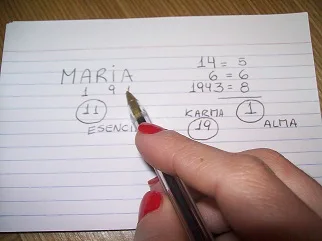 MARIA
1 9 1
11
ESENCI
14 = 5
6 = 6
1943 = 8
KARMA 1
19 ALMA